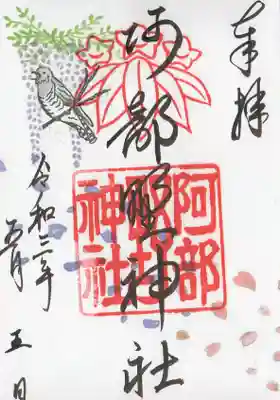 奉拝
阿部野神社
阿部野神社
令和三年
五月
五日